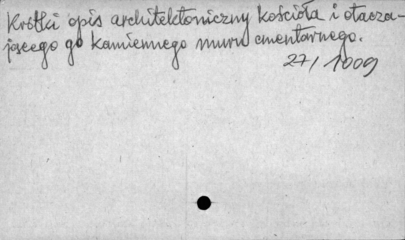 Krótki opis architektoniczny kościoła i otacza-
jącego go kamiennego muru cmentarnego.
27/1009